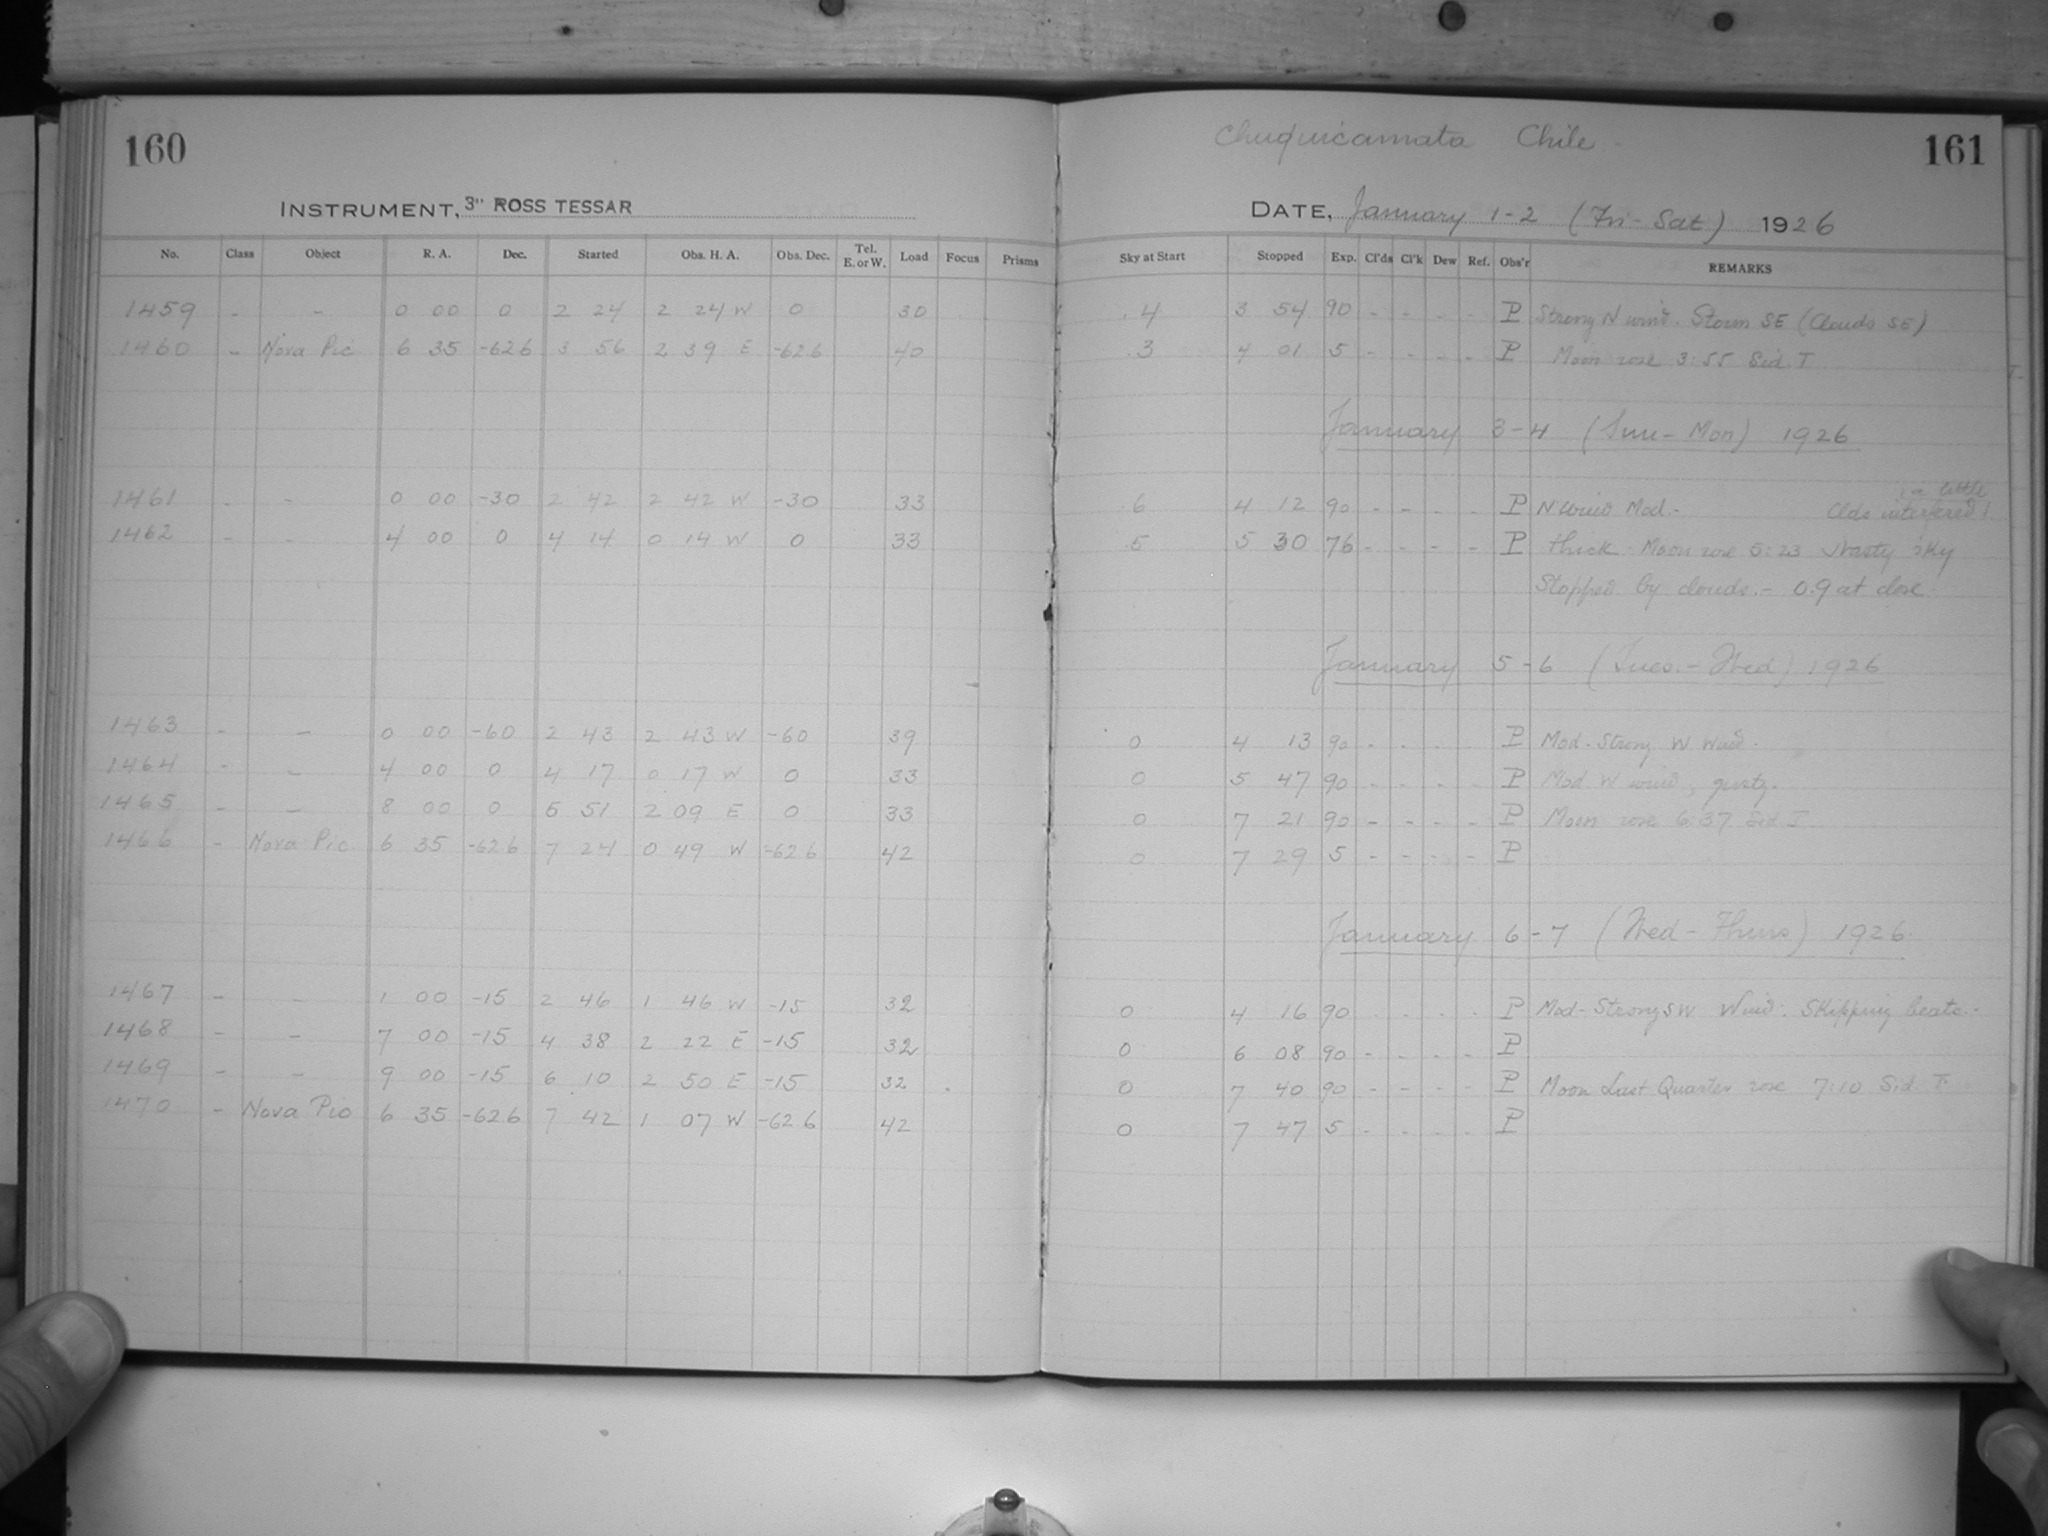 160
INSTRUMENT, 3" ROSS TESSAR
No. Class Object R. A. Dec. Started Obs. H. A. Obs. Dec. Tel. E. or W. Load Focus Prisms
1459 - - 0 00 0 2 24 2 24 W 0 30
1460 - Nova Pic 6 35 -62.6 3 56 2 39 E -62.6 40
1461 - - 0 00 -30 2 42 2 42 W -30 33
1462 - - 4 00 0 4 14 0 14 W 0 33
1463 - - 0 00 -60 2 43 2 43 W -60 39
1464 - - 4 00 0 4 17 0 17 W 0 33
1465 - - 8 00 0 5 51 2 09 E 0 33
1466 - Nova Pic 6 35 -62.6 7 24 0 49 W -62.6 42
1467 - - 1 00 -15 2 46 1 46 W -15 32
1468 - - 7 00 -15 4 38 2 22 E -15 32
1469 - - 9 00 -15 6 10 2 50 E -15 32
1470 - Nova Pic 6 35 -62.6 7 42 1 07 W -62.6 42
Chuquicamata Chile -
161
DATE, January 1-2 (Fri-Sat) 1926
Sky at Start Stopped Exp. Cl'ds Cl'k Dew Ref. Obs'r REMARKS
.4 3 54 90 - - - - P Strong N wind. Storm SE (Clouds SE)
.3 4 01 5 - - - - P Moon rose 3:55 Sid. T.
January 3-4 (Sun-Mon) 1926
.6 4 12 90 - - - - P N wind Mod.- Clds interfered a little
.5 5 30 76 - - - - P thick. Moon rose 5:23 sky
Stopped by clouds.- 0.9 at close
January 5-6 (Tues.-Wed) 1926
0 4 13 90 - - - - P Mod-Strong W Wind.
0 5 47 90 - - - - P Mod W wind, gusty.
0 7 21 90 - - - - P Moon rose 6:37 Sid. T.
0 7 29 5 - - - - P
January 6-7 (Wed-Thurs) 1926
0 4 16 90 - - - - P Mod-Strong SW Wind. Skipping beats.-
0 6 08 90 - - - - P
0 7 40 90 - - - - P Moon Last Quarter rose 7:10 Sid T.
0 7 47 5 - - - - P